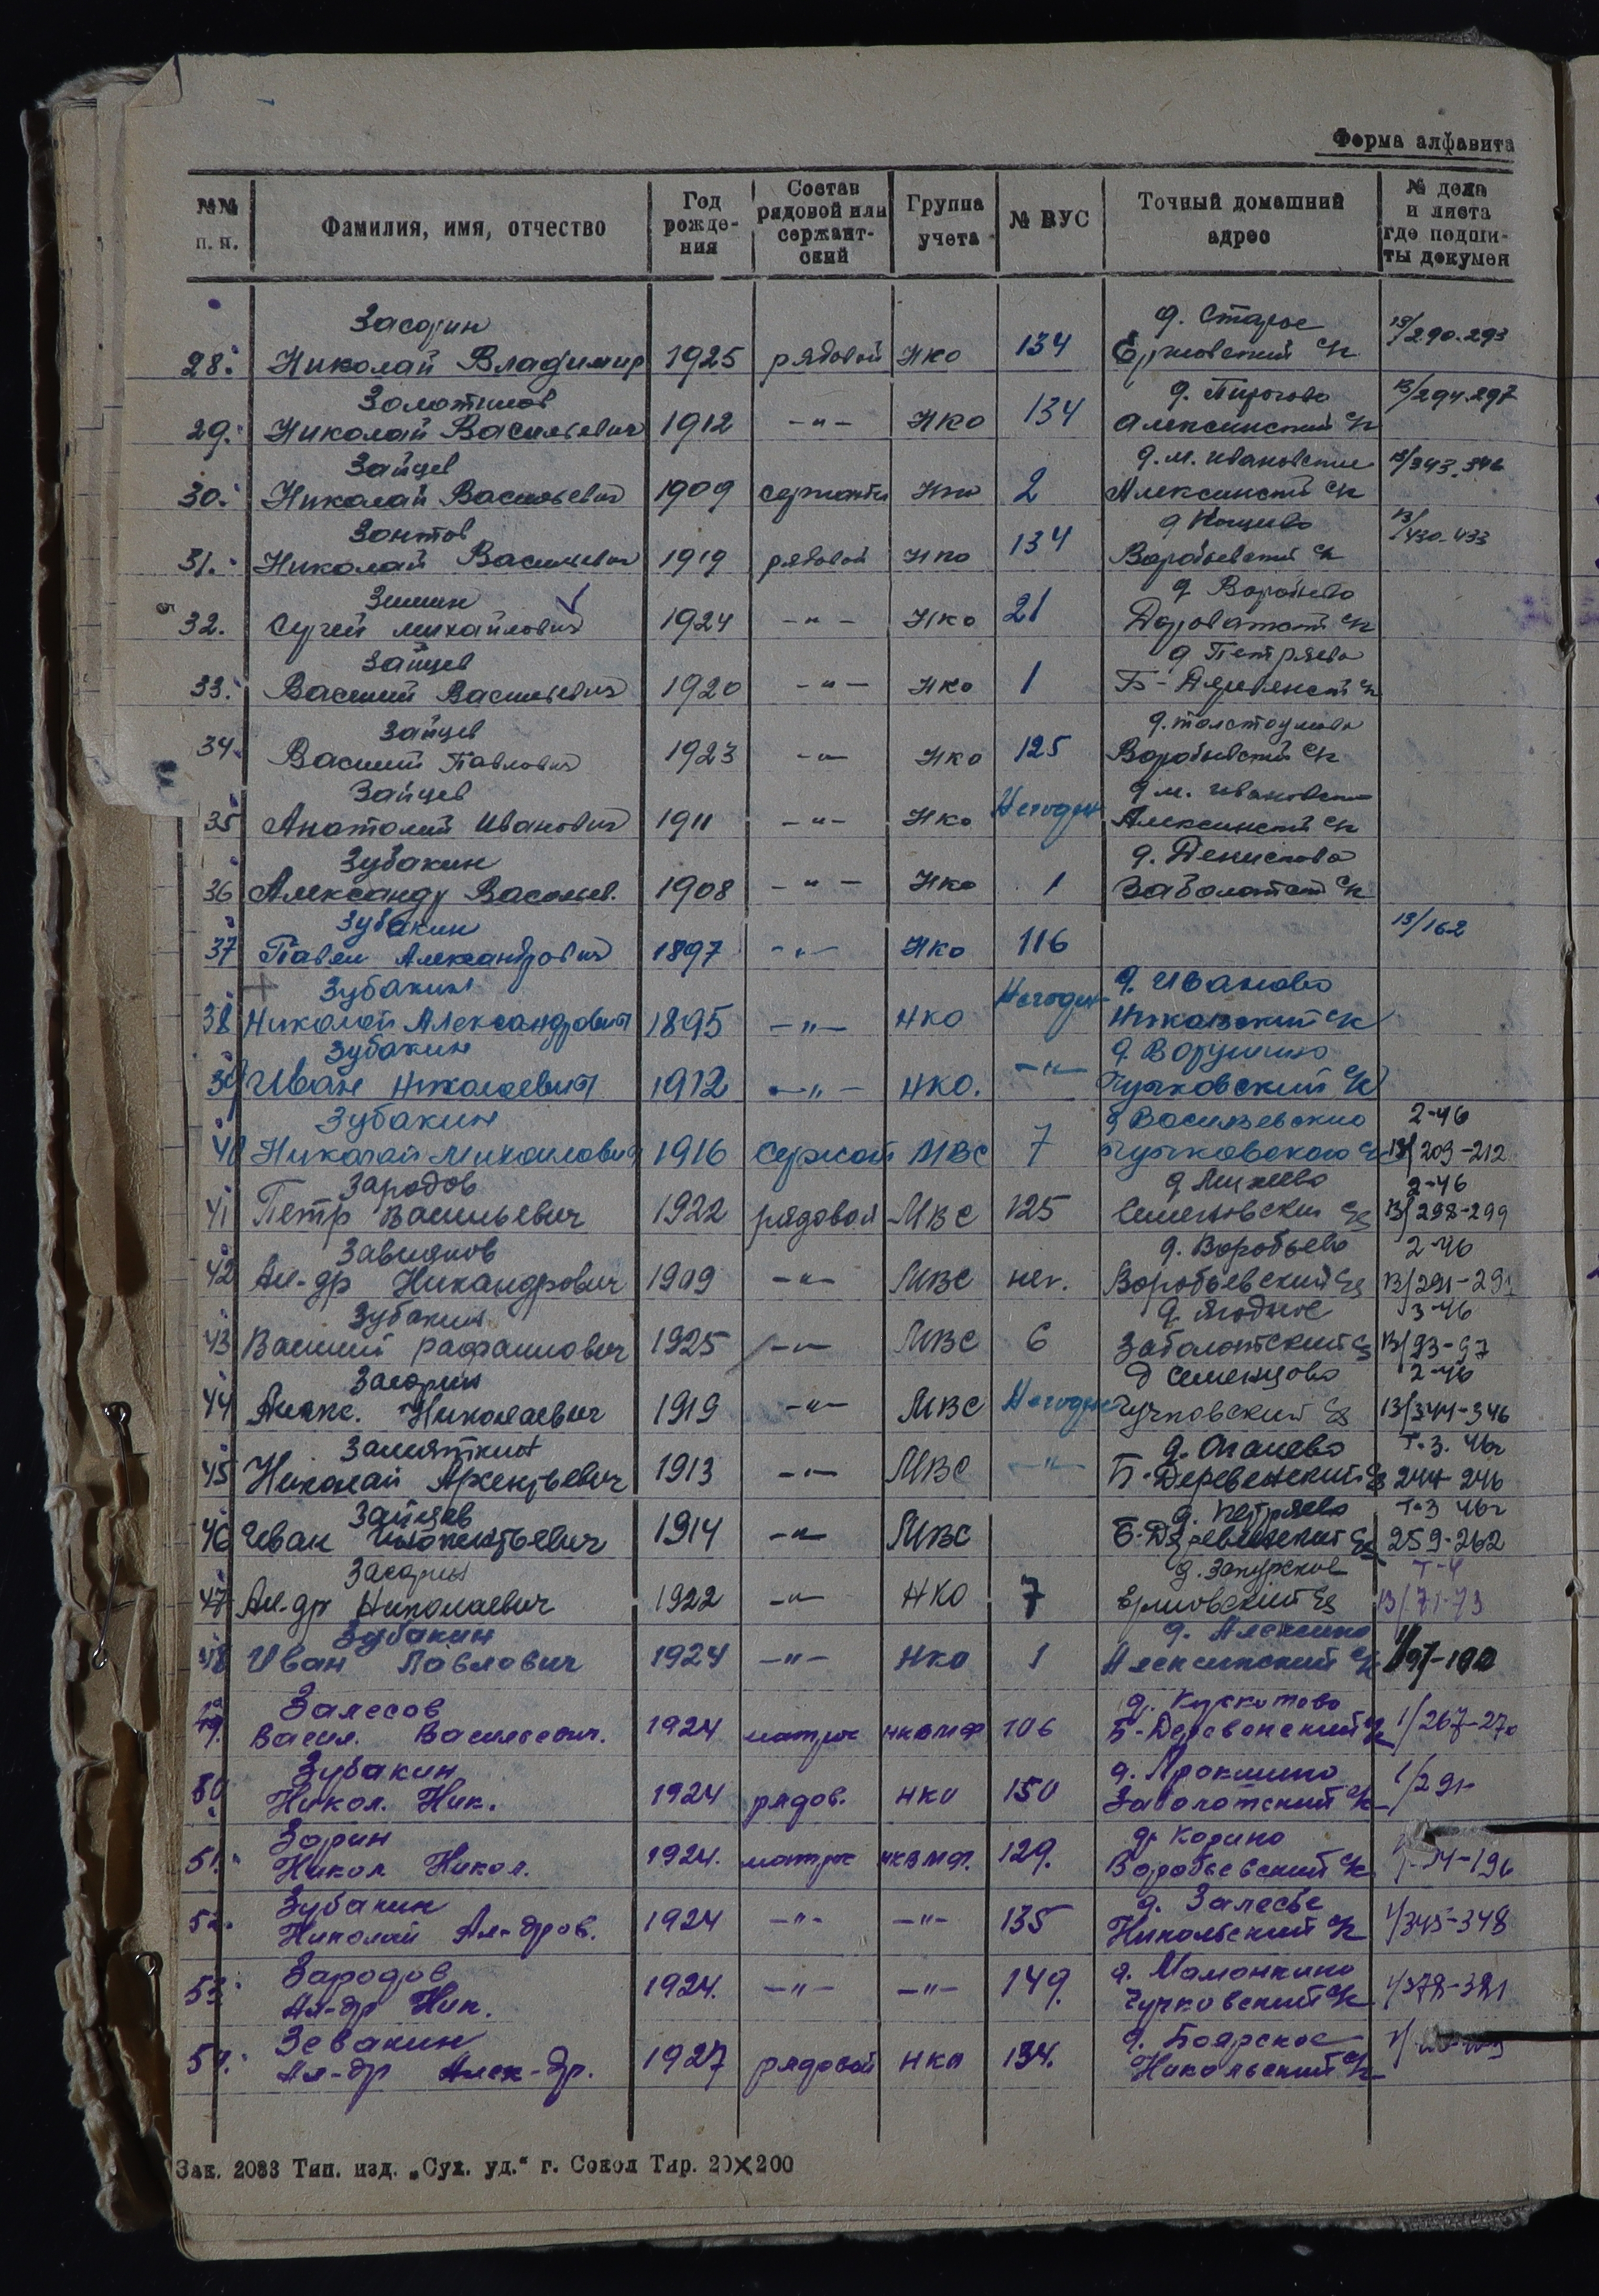 Форма алфавита
№№ п. п. Фамилия, имя, отчество Год рожде-ния Состав рядовой или сержант-ский Группа учета № ВУС Точный домашний адрес № дела и листа где подши-ты докумен
Засорин д. Старое 13/290-293
28. Николай Владимир 1925 рядовой НКО 134 Ермовский с/с
Золотилов д. Пирогово 13/294-297
29. Николай Васильевич 1912 -"- НКО 134 Алексинский с/с
Зайцев д. м. Ивановские 13/343-346
30. Николай Васильевич 1909 НКО 2 Алексинский с/с
Зонтов 13/430-433
31. Николай Васильевич 1919 рядовой НКО 134 Воробьевский с/с
Зимин д. Воробьево
32. Сергей Михайлович 1924 -"- НКО 21
Зайцев д. Петряево
33. Василий Васильевич 1920 -"- НКО 1 Б-Деревенский с/с
Зайцев
34. Василий Павлович 1923 -"- НКО 125 Воробьевский с/с
Зайцев д. м. Ивановские
35 Анатолий Иванович 1911 -"- НКО Негоден Алексинский с/с
Зубакин д. Денискова
36 Александр Васильев. 1908 -"- НКО 1 Заболотский с/с
Зубакин 13/162
37 Павел Александрович 1897 -"- НКО 116
Зубакин д. Иваново
38 Николай Александрович 1895 -"- НКО Негоден
Зубакин
39 Иван Николаевич 1912 -"- НКО. -"- Чучковский с/с
Зубакин д. Васильевское 2-46
40 Николай Михаилович 1916 Сержант МВС 7 Чучковского с/с 13/209-212
Зародов 2-46
41 Петр Васильевич 1922 рядовой МВС 125 Семеновский с/с 13/298-299
Завьялов д. Воробьево 2-46
42 Ал-др Никандрович 1909 -"- МВС нег. Воробьевский с/с 13/291-291
Зубакин д. Ягодное 3-46
43 Василий Рафаилович 1925 -"- МВС 6 Заболотский с/с 13/93-97
Засорин д Семенцово 2-46
44 Алекс. Николаевич 1919 -"- МВС Негоден Чучковский с/с 13/344-346
Замяткин д. Оганево т-3. 46г
45 Николай Арсентьевич 1913 -"- МВС -"- Б-Деревенский с/с 244-246
Зайцев д. Петряево т-3 46г
46 Иван Инокентьевич 1914 -"- МВС Б-Деревенский с/с 259-262
Засорин т-4
47 Ал-др Николаевич 1922 -"- НКО 7 Ермовский с/с 13/71-73
Зубакин д. Алексино
48 Иван Павлович 1924 -"- НКО 1 Алексинский с/с 1/97-100
Залесов
49. Васил. Васильевич. 1924 матрос НКВМФ 106 Б-Деревенский с/с 1/267-270
Зубакин
50 Никол. Ник. 1924 рядов. НКО 150 Заболотский с/с 1/291-
Зорин д. Корино
51. Никол Никол. 1924. матрос НКВМФ. 129. Воробьевский с/с
Зубакин д. Залесье
52. Николай Ал-дров. 1924 -"- -"- 135 Никольский с/с 1/345-348
Зародов д. Мамонкино
53. Ал-др Ник. 1924. -"- -"- 149. Чучковский с/с 1/378-381
Зевакин д. Боярское
54. Ал-др Алек-др. 1927 рядовой НКО 134. Никольский с/с
Зак. 2083 Тип. изд. „Сух. уд.“ г. Сокол Тир. 20×200